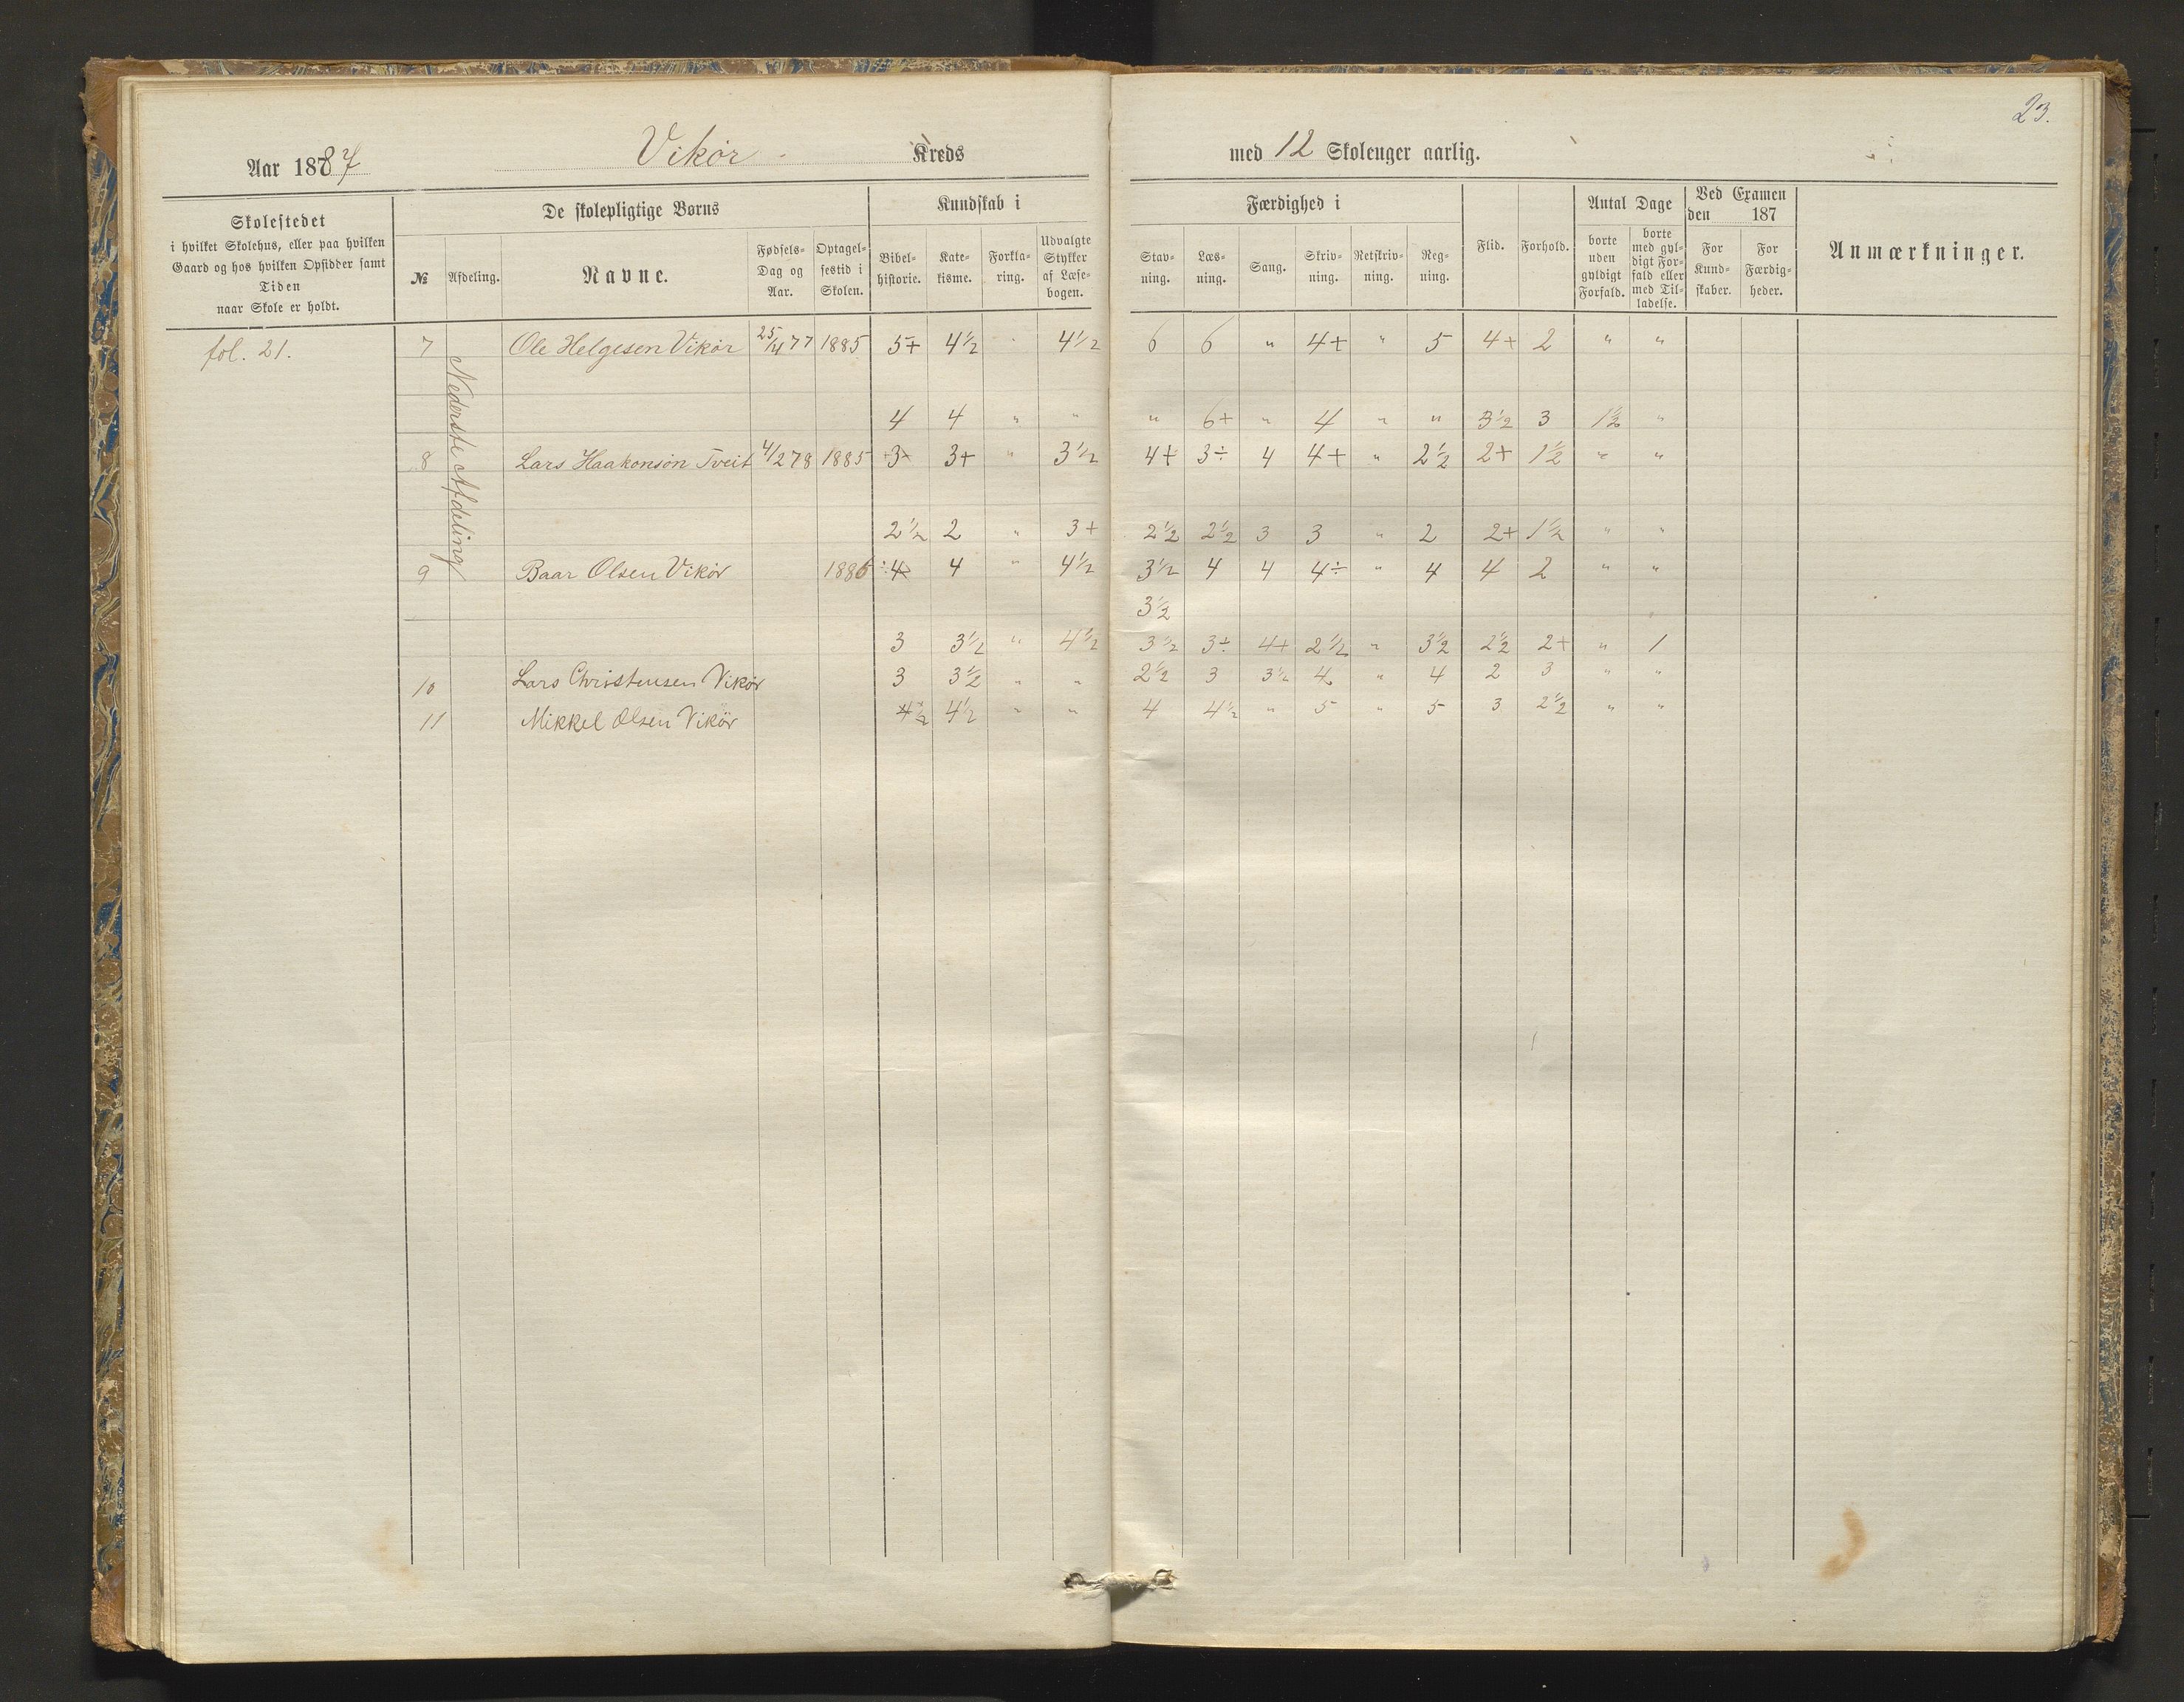 23.
Aar 1887 Vikør Kreds med 12 Skoleuger aarlig.
Skolestedet
i hvilket Skolehus, eller paa hvilken
Gaard og hos hvilken Opsidder samt
Tiden
naar Skole er holdt.
De skolepligtige Børns
№
Afdeling.
Navne.
Fødsels-
Dag og
Aar.
Optagel-
sestid i
Skolen.
Kundskab i
Bibel-
historie.
Kate-
kisme.
Forkla-
ring.
Udvalgte
Stykker
af Læse-
bogen.
Færdighed i
Stav-
ning.
Læs-
ning.
Sang.
Skriv-
ning.
Retskriv-
ning.
Reg-
ning.
Flid.
Forhold.
Antal Dage
borte
uden
gyldigt
Forfald.
borte
med gyl-
digt For-
fald eller
med Til-
ladelse.
Ved Examen
den 187
For
Kund-
skaber.
For
Færdig-
heder.
Anmærkninger.
fol. 21.
Nederste Afdeling
7 Ole Helgesen Vikør 25/4 77 1885 5+ 4½ " 4½ 6 6 " 4+ " 5 4+ 2 " "
4 4 " " " 6+ " 4 " " 3½ 3 1½ "
8 Lars Haakonsøn Tveit 4/2 78 1885 3+ 3+ " 3½ 4+ 3÷ 4 4+ " 2½ 2+ 1½ " "
2½ 2 " 3+ 2½ 2½ 3 3 " 2 2+ 1½ " "
9 Baar Olsen Vikør 1886 4 4 " 4½ 3½ 4 4 4÷ " 4 4 2 " "
3½
3 3½ " 4½ 3½ 3÷ 4+ 2½ " 3½ 2½ 2+ " 1
10 Lars Christensen Vikør 3 3½ " " 2½ 3 3½ 4 " 4 2 3 " "
11 Mikkel Olsen Vikør 4½ 4½ " " 4 4½ " 5 " 5 3 2½ " "